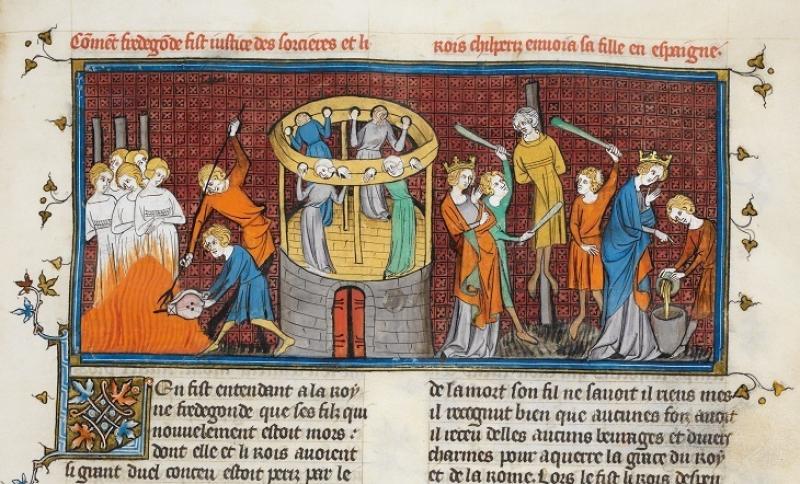 Cōmēt fredegōde fist iustice des sorcieres et li
Rois chilperiz enuoia sa fille en espaigne.
Len fist entendant a la roy
ne fredegonde que ses filz qui
nouuelement estoit mors :
dont elle et li rois auoient
si grant duel conceu estoit periz par le
de la mort son fil ne sauoit il riens mes
il recognut bien que aucunes foiz auoit
il receu delles aucuns beurages et diuers
charmes pour aquerre la grace du roy
et de la roine. Lors le fist li rois despen